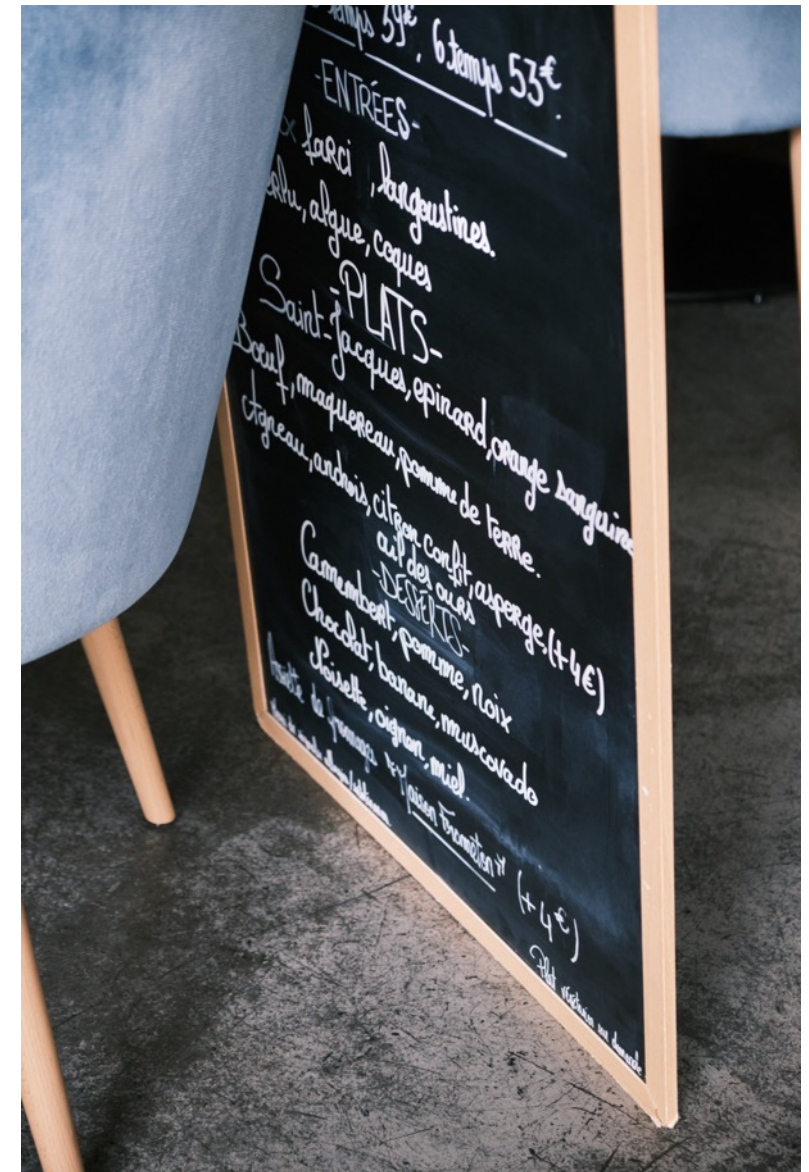 temps 59€, 6 temps 53€.
-ENTRÉES-
farci, langoustines.
algue, coques
-PLATS-
Saint-Jacques, epinard, orange sanguine
Boeuf, maquereau, pomme de terre.
Agneau, anchois, citron confit, asperge, (+4€)
ail des ours
-DESSERTS-
Camembert, pomme, noix
Chocolat, banane, muscovado
Noisette, oignon, miel.
de fromages Maison (+4€)
Plat végétarien sur demande